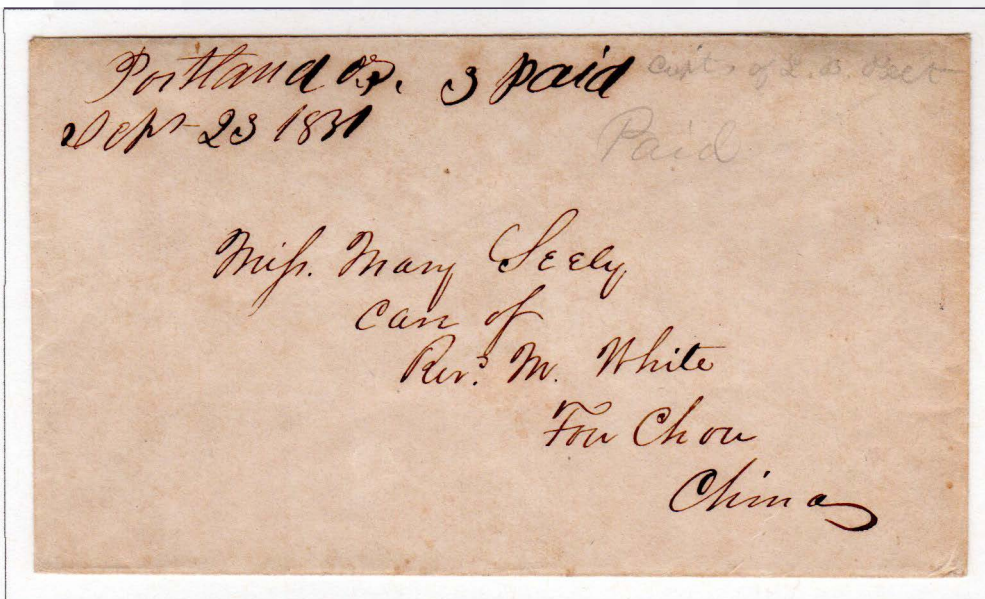 Portland O.T. 3 Paid
Sept 23 1851
Paid
Miss. Mary Seely
care of
Revd. M. White
Fou Chou
China